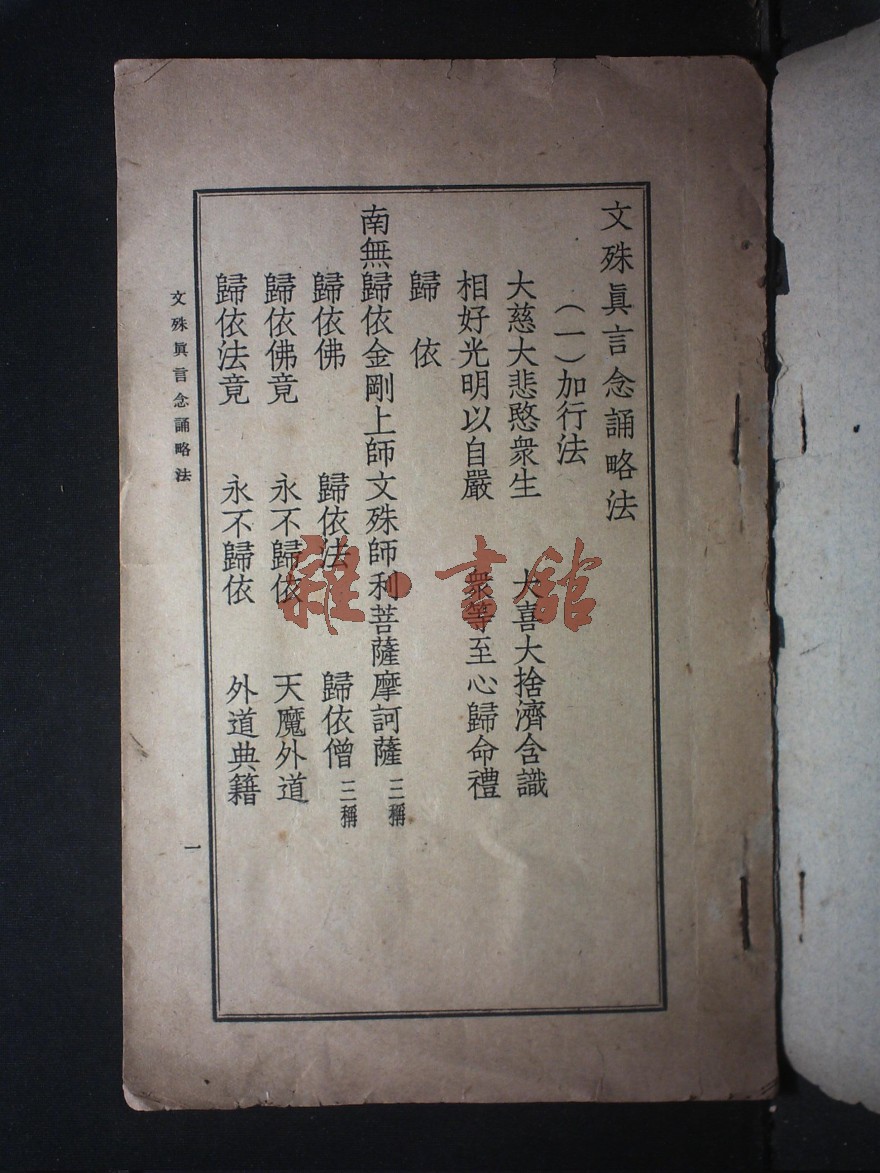 文殊眞言念誦略法
（一）加行法
大慈大悲愍衆生　大喜大捨濟含識
相好光明以自嚴　衆等至心歸命禮
歸依
南無歸依金剛上師文殊師利菩薩摩訶薩 三稱
歸依佛　歸依法　歸依僧 三稱
歸依佛竟　永不歸依　天魔外道
歸依法竟　永不歸依　外道典籍
文殊眞言念誦略法
一
雜·書館